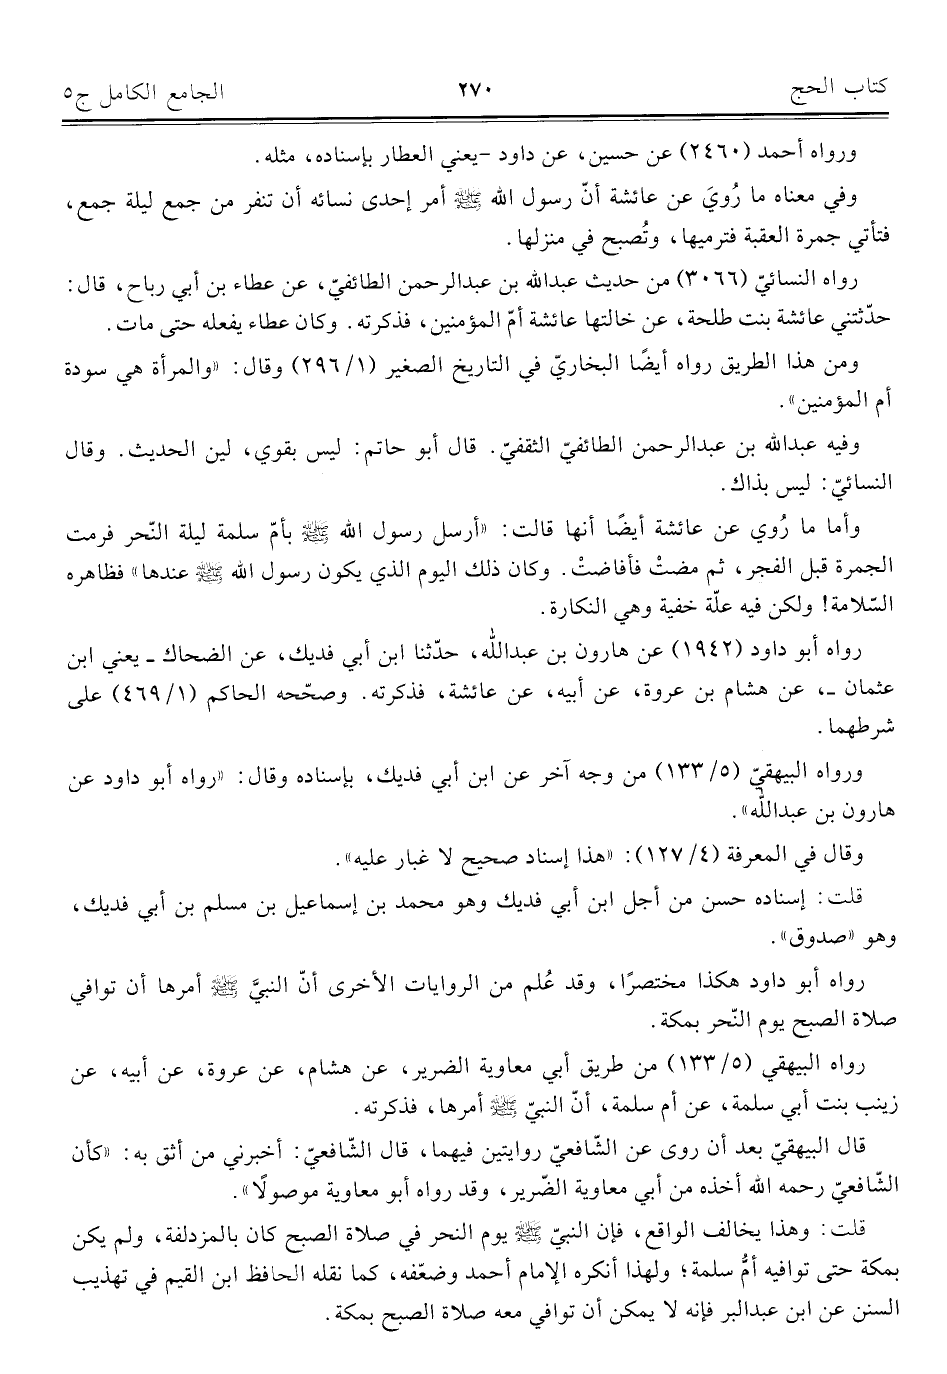 كتاب الحج ٢٧٠ الجامع الكامل ج٥
ورواه أحمد (٢٤٦٠) عن حسين، عن داود -يعني العطار بإسناده، مثله.
وفي معناه ما رُويَ عن عائشة أنّ رسول الله ﷺ أمر إحدى نسائه أن تنفر من جمع ليلة جمع،
فتأتي جمرة العقبة فترميها، وتُصبح في منزلها.
رواه النسائيّ (٣٠٦٦) من حديث عبدالله بن عبدالرحمن الطائفيّ، عن عطاء بن أبي رباح، قال:
حدّثتني عائشة بنت طلحة، عن خالتها عائشة أمّ المؤمنين، فذكرته. وكان عطاء يفعله حتى مات.
ومن هذا الطريق رواه أيضًا البخاريّ في التاريخ الصغير (١/ ٢٩٦) وقال: «والمرأة هي سودة
أم المؤمنين».
وفيه عبدالله بن عبدالرحمن الطائفيّ الثقفيّ. قال أبو حاتم: ليس بقوي، لين الحديث. وقال
النسائيّ: ليس بذاك.
وأما ما رُوي عن عائشة أيضًا أنها قالت: «أرسل رسول الله ﷺ بأمّ سلمة ليلة النّحر فرمت
الجمرة قبل الفجر، ثم مضتْ فأفاضتْ. وكان ذلك اليوم الذي يكون رسول الله ﷺ عندها» فظاهره
السّلامة! ولكن فيه علّة خفية وهي النكارة.
رواه أبو داود (١٩٤٢) عن هارون بن عبدالله، حدّثنا ابن أبي فديك، عن الضحاك ـ يعني ابن
عثمان ـ، عن هشام بن عروة، عن أبيه، عن عائشة، فذكرته. وصحّحه الحاكم (١/ ٤٦٩) على
شرطهما.
ورواه البيهقيّ (٥/ ١٣٣) من وجه آخر عن ابن أبي فديك، بإسناده وقال: «رواه أبو داود عن
هارون بن عبدالله».
وقال في المعرفة (٤/ ١٢٧): «هذا إسناد صحيح لا غبار عليه».
قلت: إسناده حسن من أجل ابن أبي فديك وهو محمد بن إسماعيل بن مسلم بن أبي فديك،
وهو «صدوق».
رواه أبو داود هكذا مختصرًا، وقد عُلم من الروايات الأخرى أنّ النبيَّ ﷺ أمرها أن توافي
صلاة الصبح يوم النّحر بمكة.
رواه البيهقي (٥/ ١٣٣) من طريق أبي معاوية الضرير، عن هشام، عن عروة، عن أبيه، عن
زينب بنت أبي سلمة، عن أم سلمة، أنّ النبيّ ﷺ أمرها، فذكرته.
قال البيهقيّ بعد أن روى عن الشّافعيّ روايتين فيهما، قال الشّافعيّ: أخبرني من أثق به: «كأن
الشّافعيّ رحمه الله أخذه من أبي معاوية الضّرير، وقد رواه أبو معاوية موصولًا».
قلت: وهذا يخالف الواقع، فإن النبيّ ﷺ يوم النحر في صلاة الصبح كان بالمزدلفة، ولم يكن
بمكة حتى توافيه أمُّ سلمة؛ ولهذا أنكره الإمام أحمد وضعّفه، كما نقله الحافظ ابن القيم في تهذيب
السنن عن ابن عبدالبر فإنه لا يمكن أن توافي معه صلاة الصبح بمكة.